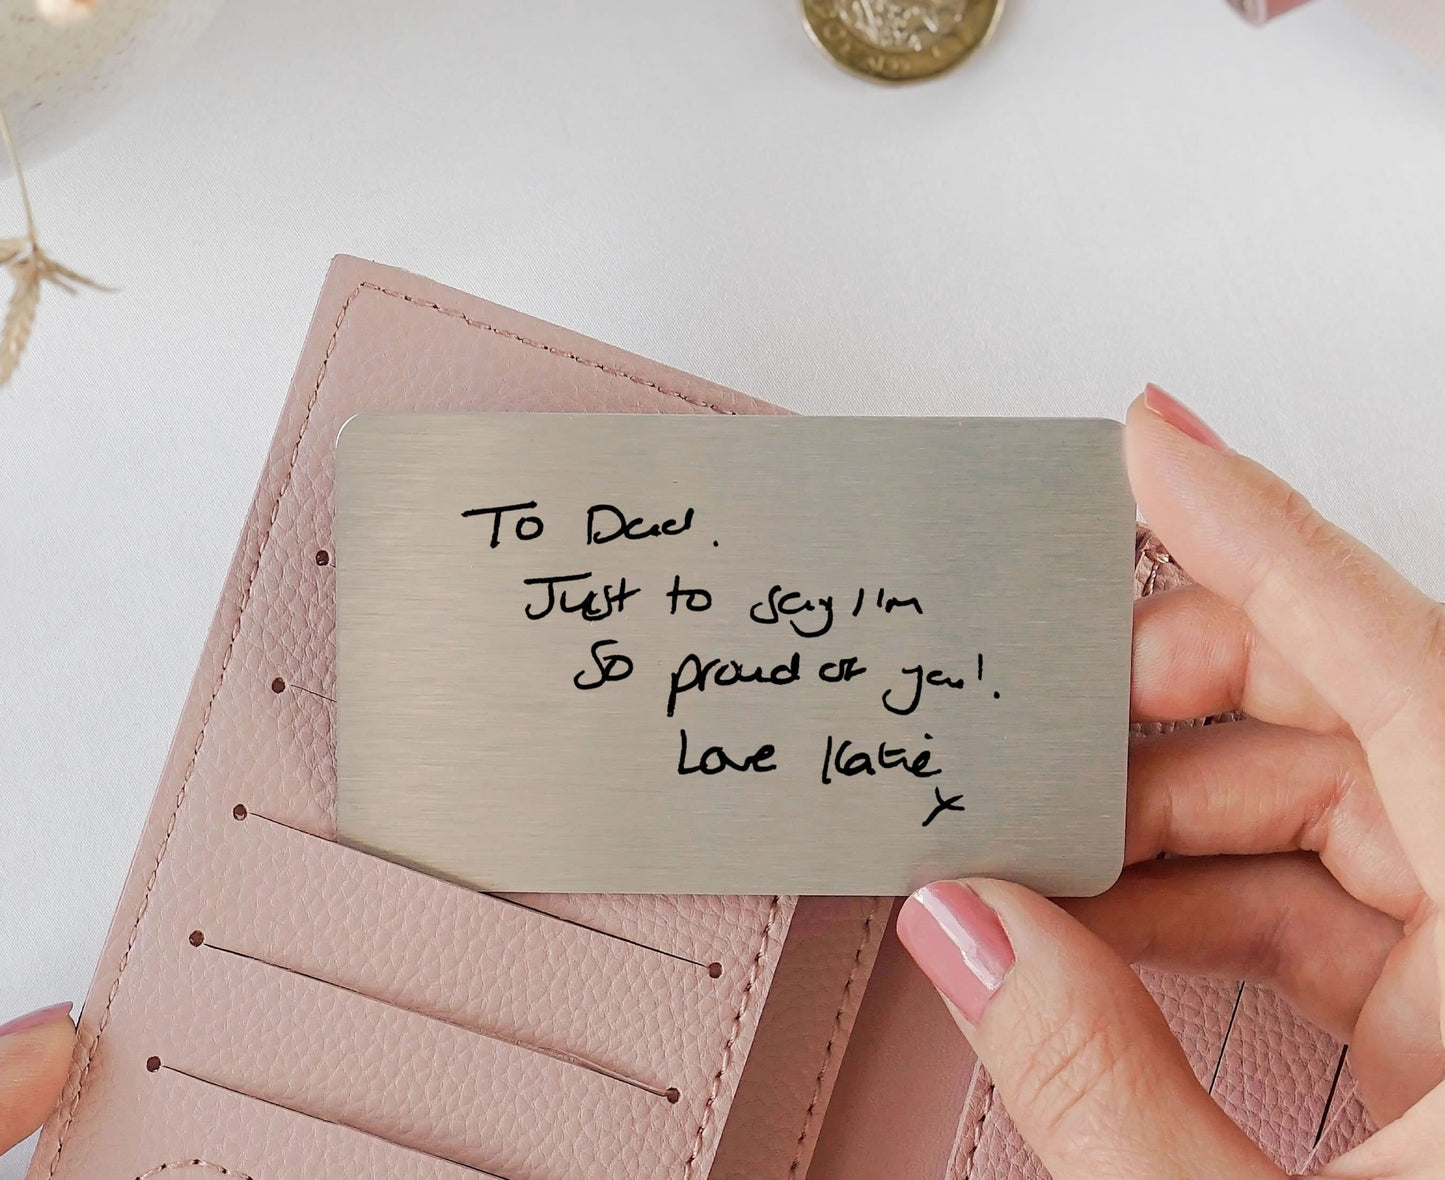 To Dad.
Just to say I'm
So proud of you!.
Love Katie
x